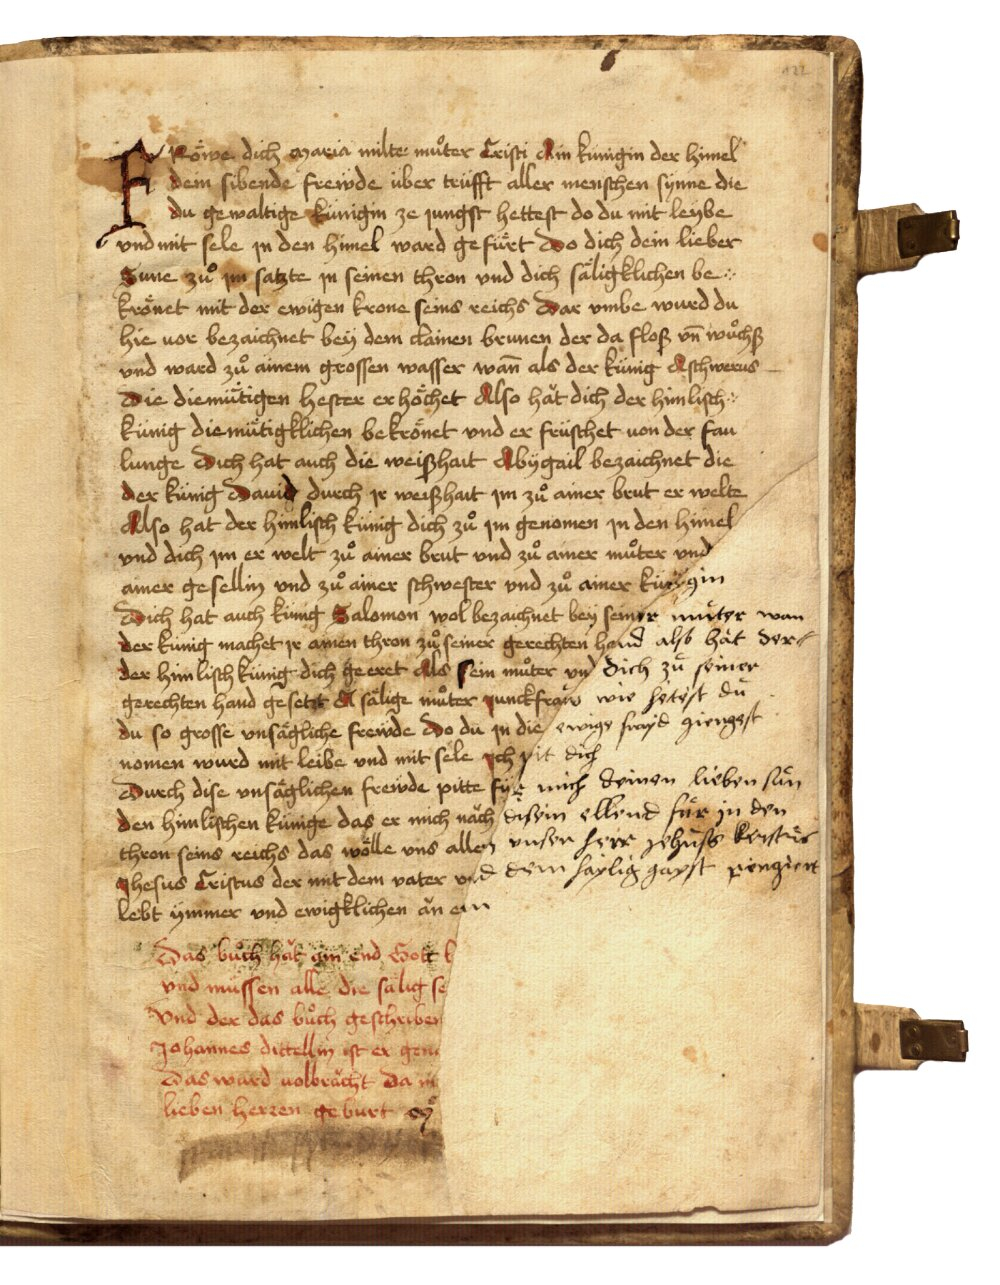 122
FRöwe dich maria milte muͦter Cristi Ain künigin der himel
dem sibende freẅde über trüfft aller menschen synne die
du gewaltige künigin ze jungst hettest do du mit leybe
vnd mit sele jn den himel ward gefürt Do dich dein lieber
Sune zuͦ jm satzte jn seinen thron vnd dich säligklichen be
krönet mit der ewigen krone seins reichs Dar vmbe wurd du
hie vor bezaichnet beÿ dem clainen brunen der da floß vn̄ wuͦchß
vnd ward zuͦ ainem grossen wasser wan̄ als der künig Aschwerus
Die diemütigen hester er höchet Also hät dich der himlisch
künig diemütigklichen bekrönet vnd er früschet von der fau
lunge Dich hat auch die weißhait Abÿgail bezaichnet die
der künig Dauid durch jr weißhait jm zuͦ ainer brut er welte
Also hat der himlisch künig dich zuͦ jm genomen jn den himel
vnd dich jm er welt zuͦ ainer brut vnd zuͦ ainer muͦter vnd
ainer gesellin vnd zuͦ ainer schwester vnd zuͦ ainer künygin
Dich hat auch künig Salomon wol bezaichnet beÿ seiner muter wan
der künig machet jr ainen thron zuͦ seiner gerechten hand also hät der
der himlisch künig dich geeret Als sein muͦter vnd dich zü seiner
gerechten hand gesetzt A sälige muͦter junckfraw wie hetest du
du so grosse vnsägliche freẅde Do du jn die ewige frayd giengest
nomen wurd mit leibe vnd mit sele jch pit dich
Durch dise vnsäglichen freẅde pitte für mich deinen lieben sün
den himlischen künige das er mich näch disem ellend für jn den
thron seins reichs das wölle vns allen vnser herr jehuss kristus
jhesus Cristus der mit dem vater vnd dem haylig gayst
lebt ymmer vnd ewigklichen än em
Das buͦch hät ain end Gott
vnd müssen alle die sälig se
Vnd der das buͦch geschriben
Johannes dittellin ist er gen
Das ward volbrächt Da m
lieben herren geburt